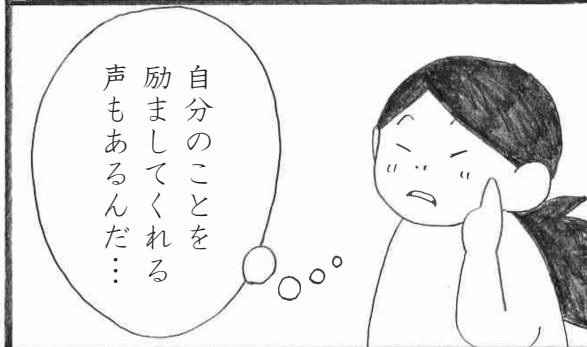 自分のことを
励ましてくれる
声もあるんだ…